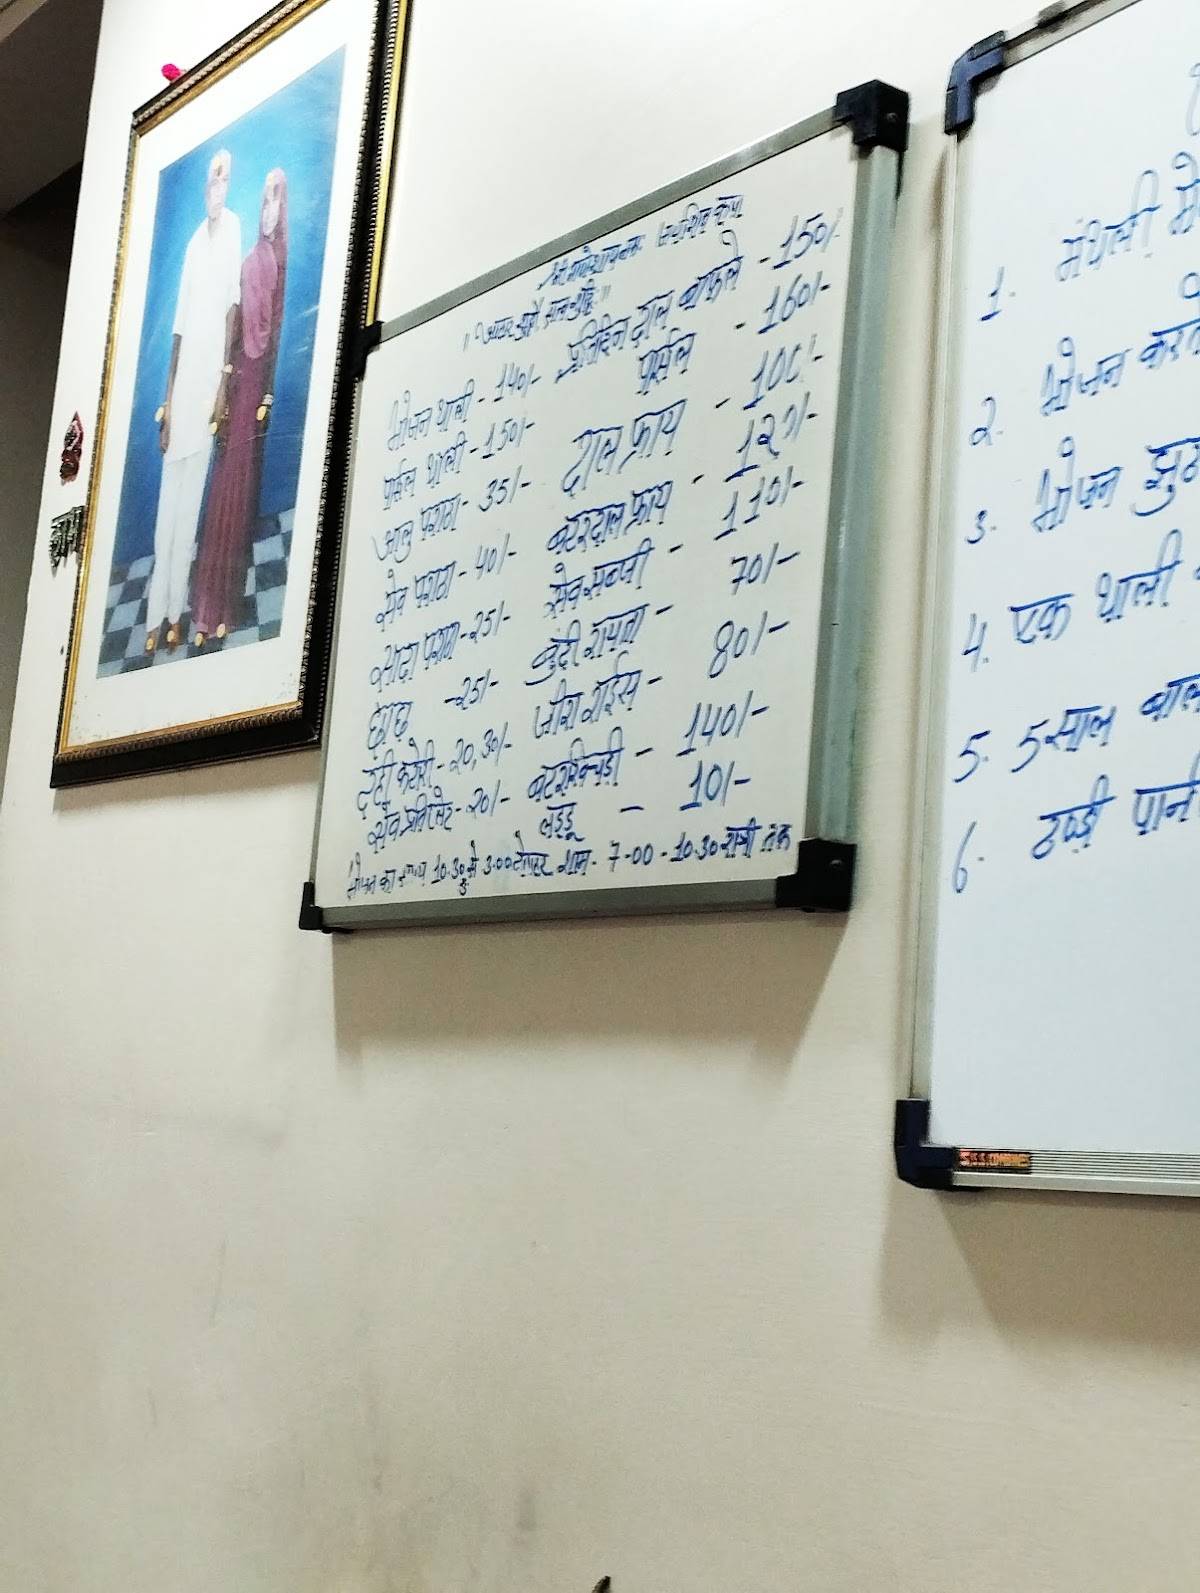 श्री गणेशाय नमः जय शिव कृपा
"आहार शुद्धो, सत्व शुद्धिः"
भोजन थाली - 140/-
पार्सल थाली - 150/-
आलु पराठा - 35/-
सेव पराठा - 40/-
सादा पराठा - 25/-
छाछ - 25/-
दही कटोरी - 20,30/-
सेव प्रति प्लेट - 20/-
प्रतिदिन दाल बाफले - 150/-
पार्सल - 160/-
दाल फ्राय - 100/-
बटर दाल फ्राय - 120/-
सेव सब्जी - 110/-
बुंदी रायता - 70/-
जीरा राईस - 80/-
बटर खिचड़ी - 140/-
लड्डू - 10/-
भोजन का समय 10.30 से 3.00 दोपहर शाम - 7.00 - 10.30 रात्री तक
1. मंथली
2. भोजन
3. भोजन झुठा
4. एक थाली
5. 5 साल
6. ठण्डी
राम